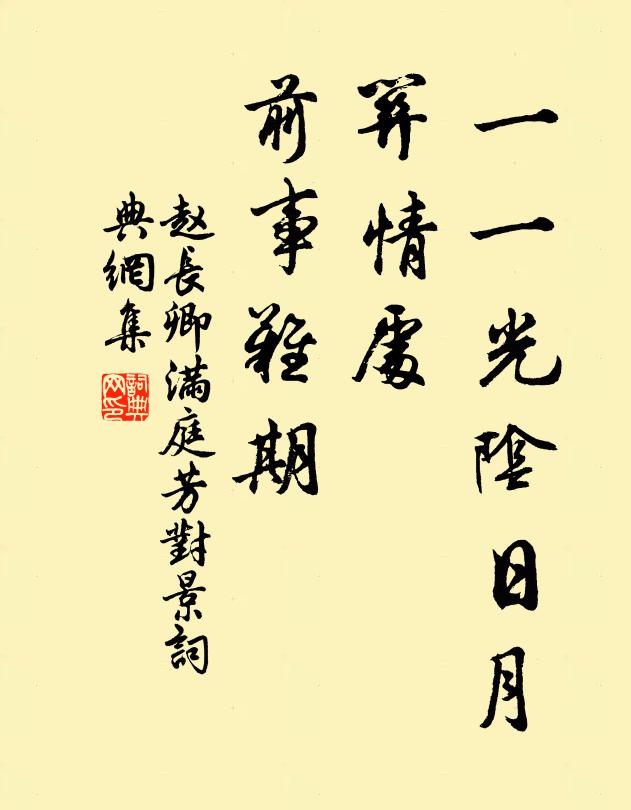 一一光陰日月
筭情處
前事難期
赵長卿滿庭芳對景詞
典網集
詞典
网印